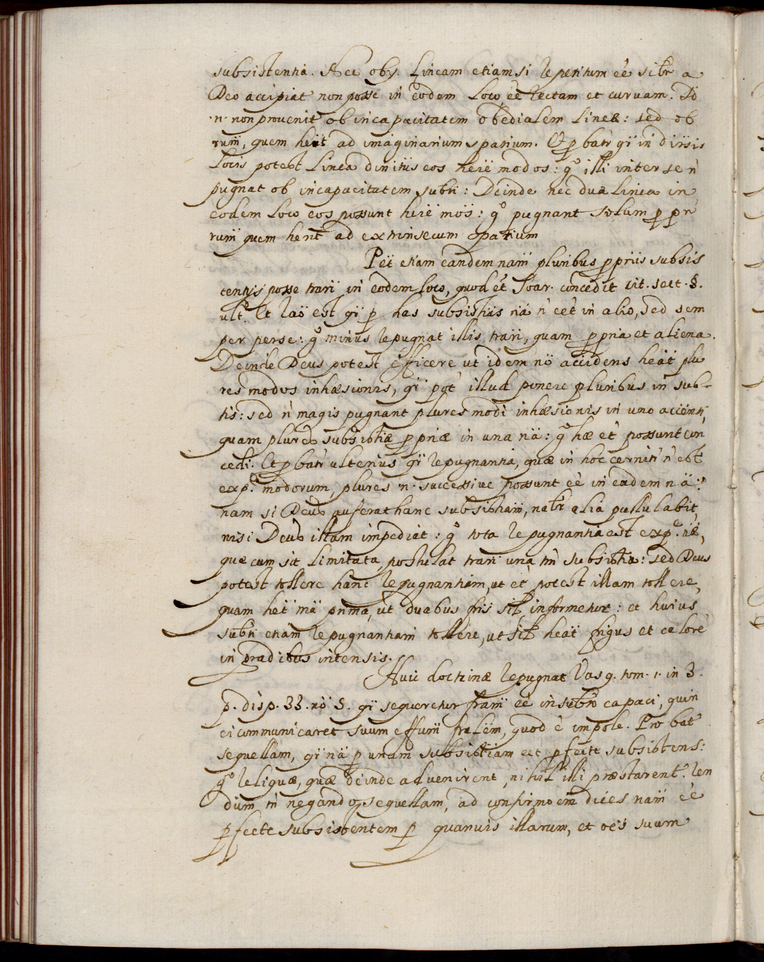 subsistentia. Nec obs. Lineam etiamsi repetitum eē sibr a
Deo accipiat non posse in eodem Loco eē rectam et curuam. Id
n. non prouenit ob incapacitatem obedialem Lineæ: sed ob
rum, quem het ad imaginarium spatium. Et p batr qi in diuisis
Locis potest Linea diuinitus eos herē modos: gº illi inter se n̄
pugnat ob incapacitatem subti: Deinde nec duæ Lineæ in
eodem Loco eos possunt herē mos: gº pugnant solum p pr
rum quem hent ad extrinsecum spatium
Pēt etiam eandem nam pluribus p priis subsis
tentijs posse trari in eodem Loco, quod et Soar. concedit cit. sect. §.
ult. Et rao est qi p has subsistias na n̄ eēt in alio, sed sem
per per se: gº minus repugnat illis trari, quam p pria et aliena.
Deinde Deus potest efficere ut idem no accidens heat plu
res modos inhæsionis, qi pot illud ponere pluribus in sub-
tis: sed n̄ magis pugnant plures modi inhæsionis in uno acciēnti,
quam plures subsistiæ p priæ in una na: gº hæ et possunt con
cedi. Et p batr ulterius qi repugnantia, quæ in hoc cernitr n̄ est
ex p. modorum, plures n. successiue possunt eē in eadem na:
nam si Deus auferat hanc subsistiam, natr alia pullulabit,
nisi Deus illam impediat: gº tota repugnantia est ex p. næ,
quæ cum sit Limitata postulat trari una tm subsistia: sed Deus
potest tollere hanc repugnantiam, ut et potest illam tollere,
quam het ma prima, ut duabus fris sil informetur: et huius
subti etiam repugnantiam tollere, ut sil heat frigus et calore
in gradibus intensis.
Huic doctrinæ repugnat Vasq. tom. 1. in 3.
p. disp. 33. no 5. qi sequeretur fram eē in subto capaci, quin
ei communicaret suum effum fralem, quod ē impole. Probat
sequellam, qi na p unam subsistiam eēt p fecte subsistens:
gº reliquæ, quæ deinde aduenirent, nihil illi præstarent. Ien
dum tn negando sequellam, ad confirmoem dices nam eē
p fecte subsistentem p quamuis illarum, et oes suum